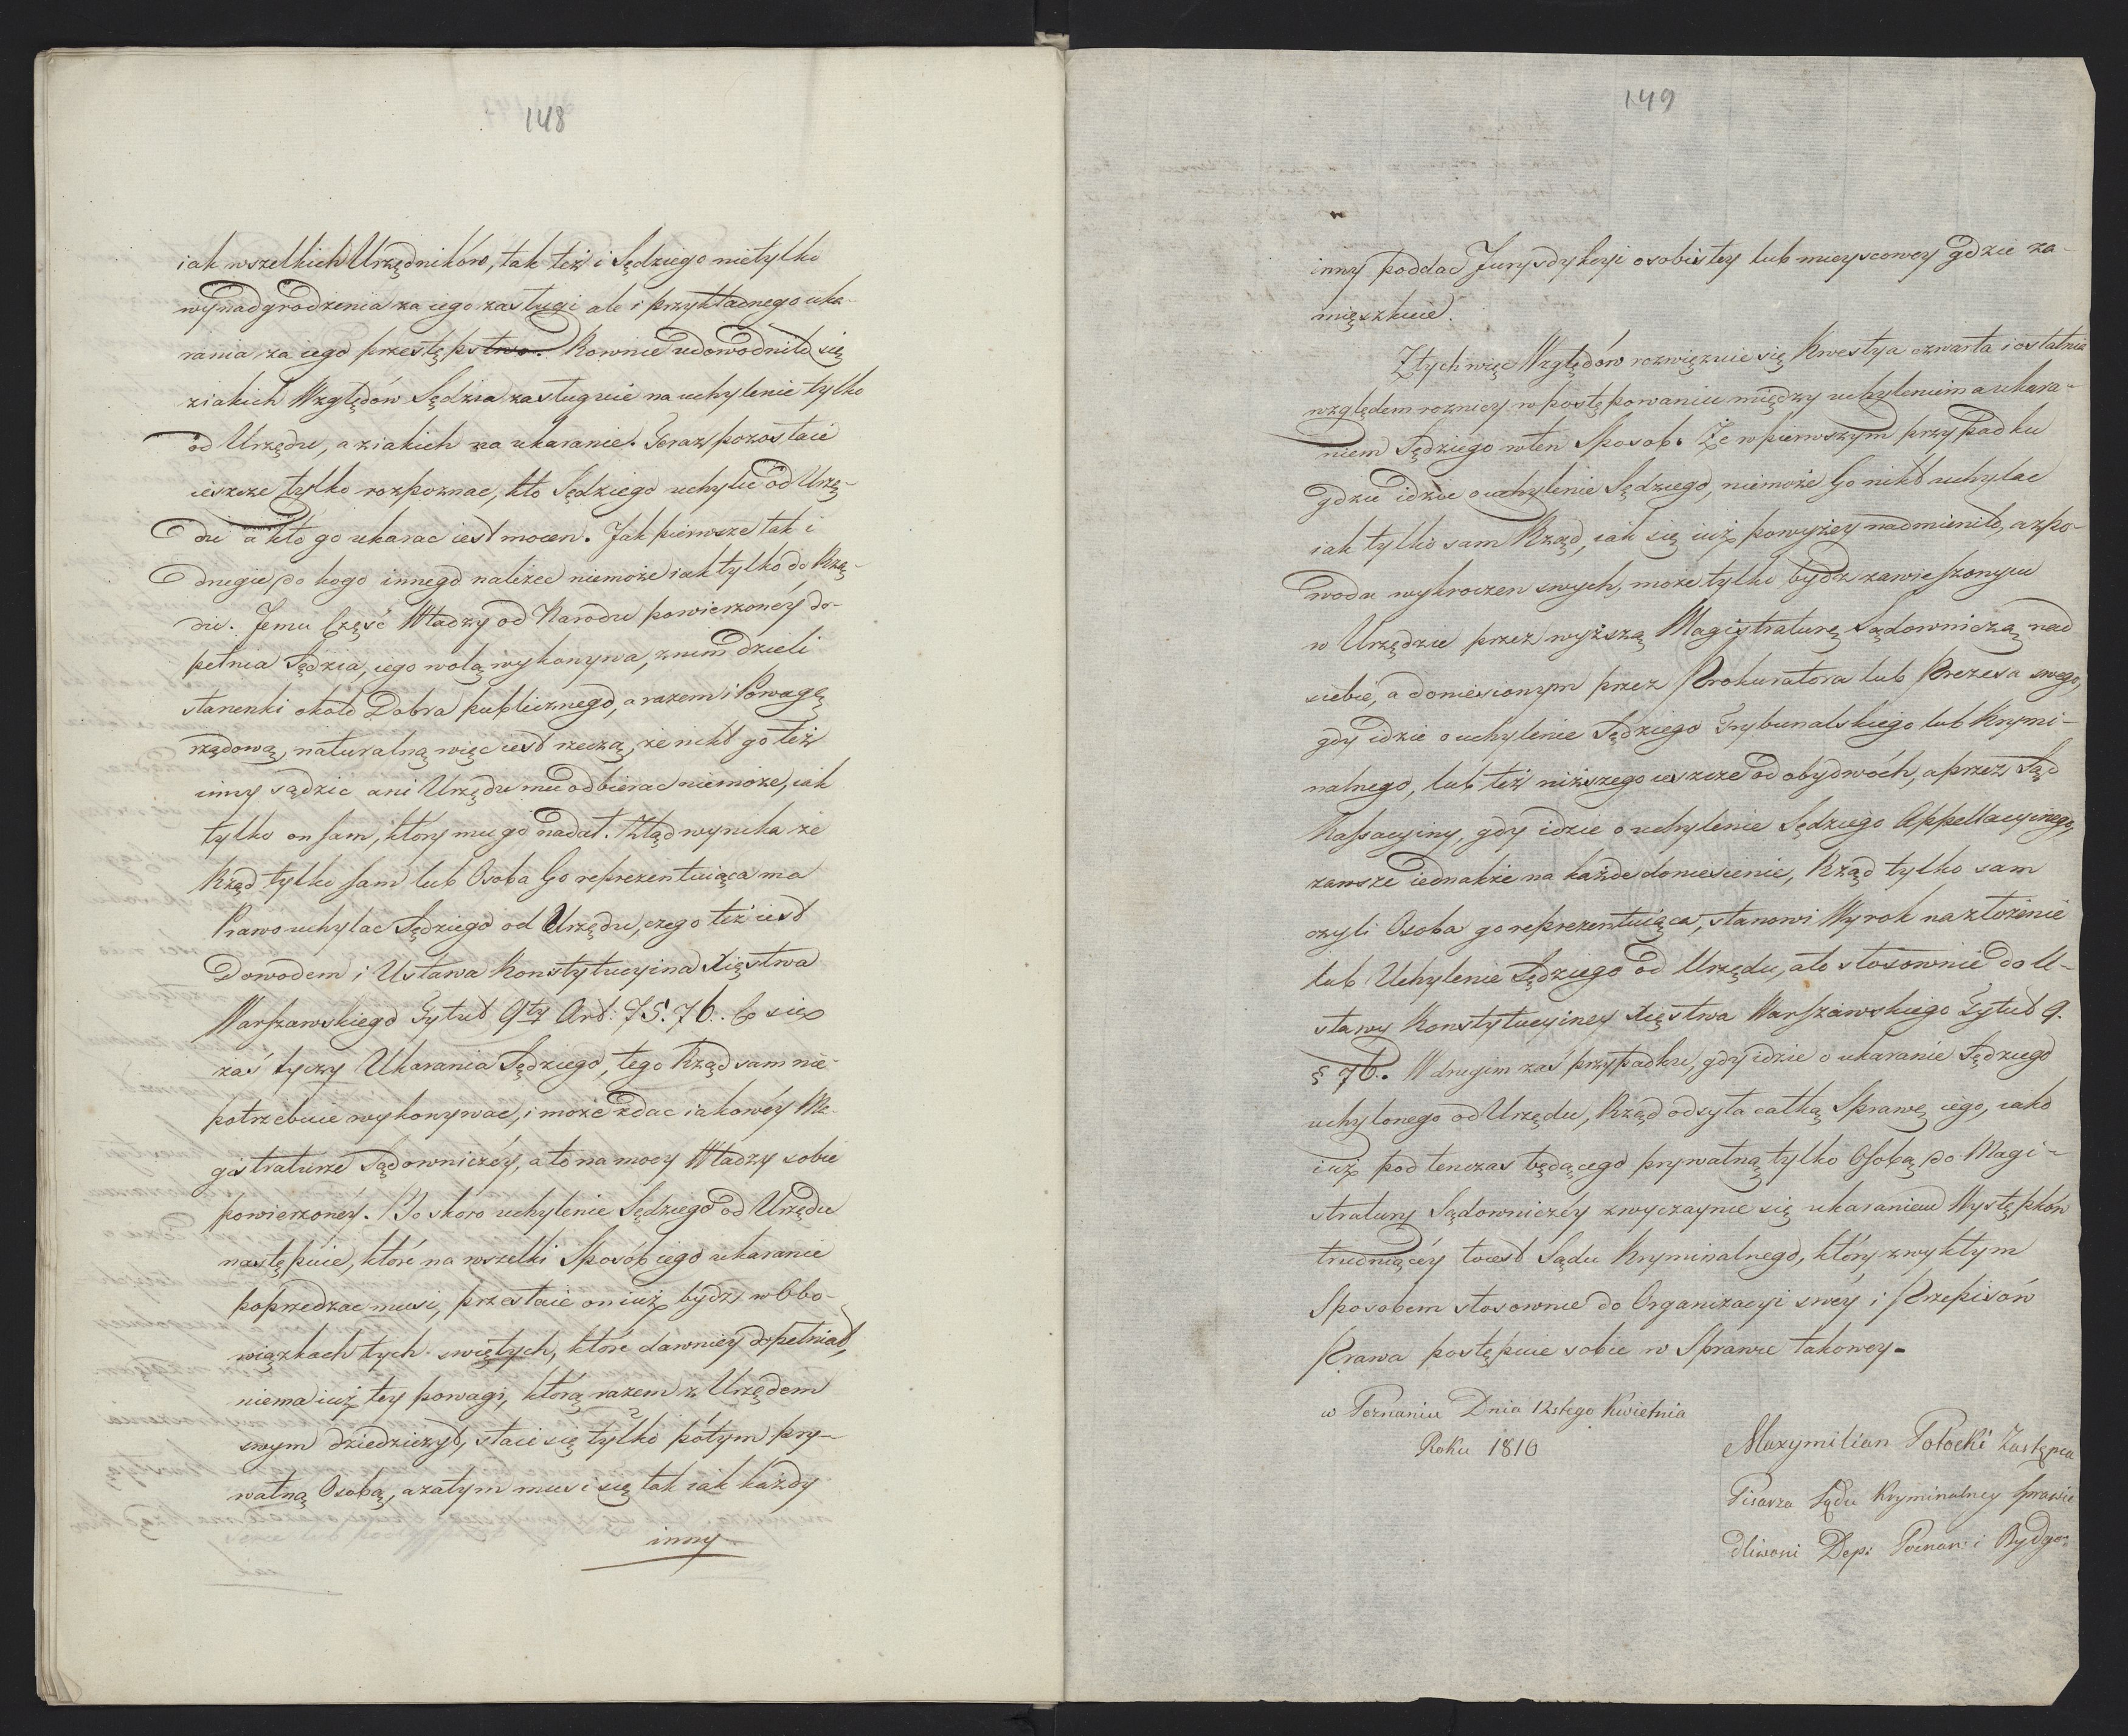 148
iak wszelkich Urzędników, tak też i Sędziego nietylko
wynadgrodzenia za iego zasługi ale i przykładnego uka-
rania za iego przestępstwo. Rownie udowodniło się
ziakich Względów Sędzia zasługuie na uchylenie tylko
od Urzędu, a ziakich na ukaranie. Teraz pozostaie
ieszcze tylko rozpoznac, kto Sędziego uchylić od Urzę-
du a kto go ukarac iest mocen. Jak pierwsze tak i
drugie do kogo innego należec niemoże iak tylko do Rzą-
du. Jemu Część Władzy od Narodu powierzonéy do-
pełnia Sędzia, iego wolą wykonywa, znim dzieli
starunki około Dobra publicznego, a razem i Powagę
rządową, naturalną więc iest rzeczą, że nikt go też
inny sądzić ani Urzędu mu odbierac niemoże, iak
tylko on sam, który mu go nadał. Ztąd wynika że
Rząd tylko sam lub Osoba Go reprezentuiąca ma
Prawo uchylac Sędziego od Urzędu, czego też iest
Dowodem i Ustawa Konstytucyina Xięstwa
Warszawskiego Tytuł 9ty Art: 75. 76. Co się
zaś tyczy Ukarania Sędziego, tego Rząd sam nie
potrzebuie wykonywac, i może zdac iakowéy Ma-
gistraturze Sądowniczéy, a to na mocy Władzy sobie
powierzonéy. Bo skoro uchylenie Sędziego od Urzędu
nastąpuie, które na wszelki Sposób iego ukaranie
poprzedzac musi, przestaie on iuż bydź w Obo-
wiązkach tych swiętych, które dawniey dopełniał,
niema iuż tey powagi, którą razem z Urzędem
swym dziedziczył, staie się tylko pótym pry-
watną Osobą, a zatym musi się tak iak każdy
inny
149
inny poddac Jurysdykcyi osobistey lub mieyscowey gdzie za-
mięszkuie.
Z tych więc Względów rozwięzuie się Kwestya czwarta i ostatnia
względem roznicy w postępowaniu między uchyleniem a ukara-
niem Sędziego wten Sposob. Że w pierwszym przypadku
gdzie idzie o uchylenie Sędziego, niemoże Go nikt uchylac
iak tylko sam Rząd, iak się iuż powyżey nadmieniło, a z po-
wodu wykroczen swych, może tylko bydz zawieszonym
w Urzędzie przez wyższą Magistraturę Sądowniczą nad
siebie, a doniesionym przez Prokuratora lub Prezesa swego,
gdy idzie o uchylenie Sędziego Trybunalskiego lub Krymi-
nalnego, lub też niższego ieszcze od obydwóch, a przez Sąd
Kassacyiny, gdy idzie o uchylenie Sędziego Appellacyinego,
zawsze iednakże na każde doniesienie, Rząd tylko sam
czyli Osoba go reprezentuiąca, stanowi Wyrok na złożenie
lub Uchylenie Sędziego od Urzędu, ale stosownie do U-
stawy Konstytucyiney Xięstwa Warszawskiego Tytuł 9.
§ 76. W drugim zaś przypadku, gdy idzie o ukaranie Sędziego
uchylonego od Urzędu, Rząd odsyła całką Sprawę iego, iako
iuż pod tenczas będącego prywatną tylko Osobą do Magi-
stratury Sądowniczéy zwyczaynie się ukaraniem Występków
trudniącéy toiest Sądu Kryminalnego, który zwykłym
Sposobem stosownie do Organizacyi swéy i Przepisów
Prawa postępuie sobie w Sprawie takowey.
w Poznaniu Dnia 12stego Kwietnia
Roku 1810
Maxymilian Potocki Zastępca
Pisarza Sądu Kryminalney Sprawie
dliwoni Dep: Poznan: i Bydgo: